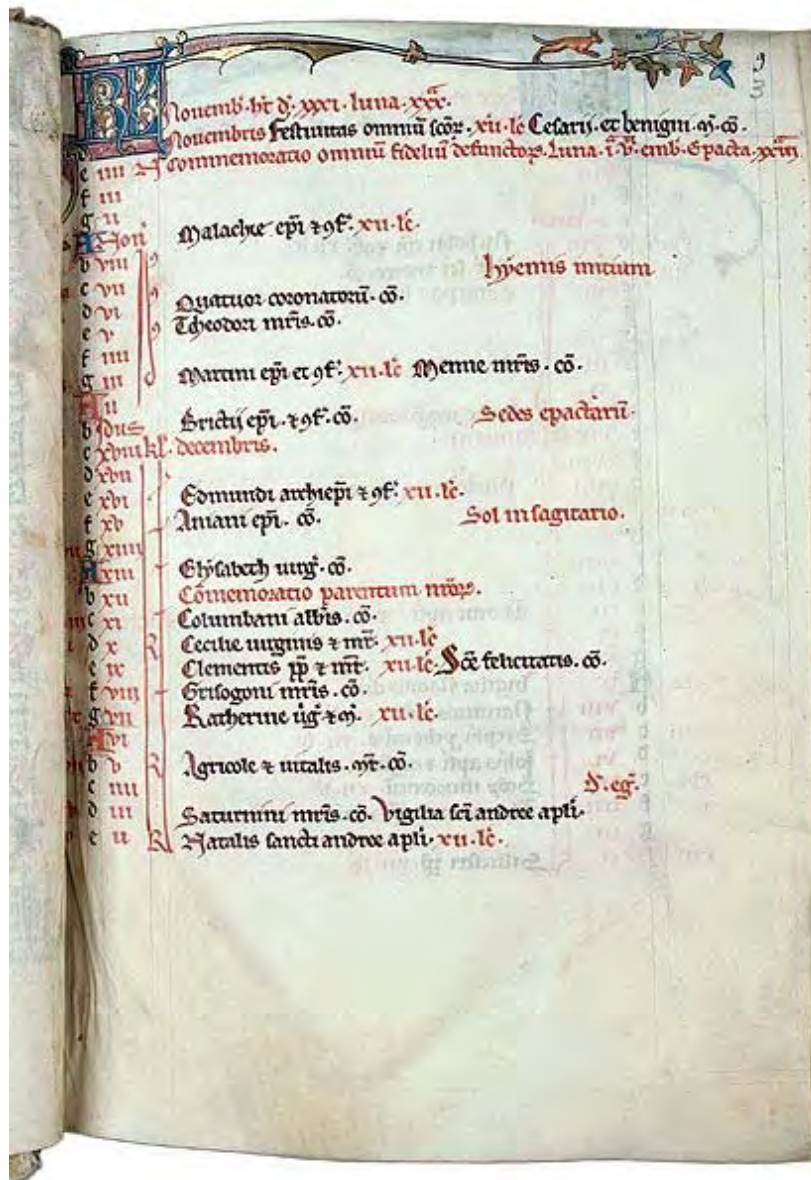 KL Nouemb. ht d. xxxi. luna. xxx.
Nouembris Festiuitas omniū scōr. xii. lc Cesarii. et benigni. m. cō.
e iiii N Commemoratio omniū fideliū defunctor. Luna. i. emb. Epacta. xxiii
f iii
g ii
A Non Malachie ep̄i ⁊ ꝯf. xii. lc.
b viii hyemis initium
c vii
d vi Quatuor coronatorū. cō.
e v Theodori mr̄is. cō.
f iiii
g iii Martini ep̄i et ꝯf. xii. lc Menne mr̄is. cō.
A ii
b Idus Brictij ep̄i. ⁊ ꝯf. cō. Sedes epactarū.
c xviii kl. decembris.
d xvii
e xvi Edmundi archiep̄i ⁊ ꝯf. xii. lc.
f xv Aniani ep̄i. cō. Sol in sagitario.
g xiiii
A xiii Elysabeth uirg. cō.
b xii Cōmemoratio parentum nr̄or.
c xi Columbani abb̄is. cō.
d x R Cecilie uirginis ⁊ mr. xii. lc
e ix Clementis pp ⁊ mr. xii. lc. Sc̄e felicitatis. cō.
f viii Grisogoni mr̄is. cō.
g vii Katherine uīg ⁊ m. xii. lc.
A vi
b v R Agricole ⁊ uitalis. mr. cō.
c iiii D. eg.
d iii Saturnini mr̄is. cō. Vigilia sc̄i andree apli.
e ii R Natalis sancti andree apli. xii. lc.